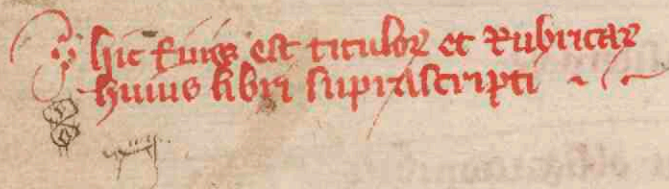 hic finis est titulorꝝ et rubricarꝝ
huius libri suprascripti